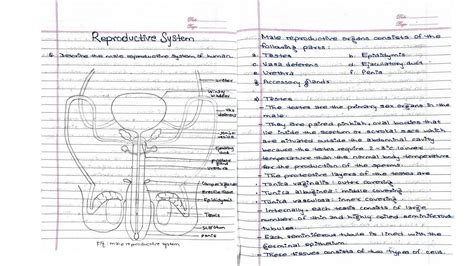 Reproductive System
Describe the male reproductive system of human
ureter
urinary
bladder
vas
deferens
Epididymis
Testis
scrotum
penis
Fig: male reproductive system
Male reproductive organs consists of the
following parts:
a. Testes b. Epididymis
c. Vasa deferens d. Ejaculatory duct
e. Urethra f. Penis
g. Accessory glands
a) Testes
- The testes are the primary sex organs in the
male.
- They are paired pinkish, oval bodies that
lie inside the scrotum or scrotal sacs which
are situated outside the abdominal cavity
because the testes require 2-3°c lower
temperature than the normal body temperature
for the production of the sperms.
- The protective layers of the testes are
Tunica vaginalis: outer covering
Tunica albuginea: middle covering
Tunica vasculosa: inner covering
- Internally, each testis consists of large
number of thin and highly coiled seminiferous
tubules.
- Each seminiferous tubule is lined with the
germinal epithelium.
- These tissues consists of two types of cells.